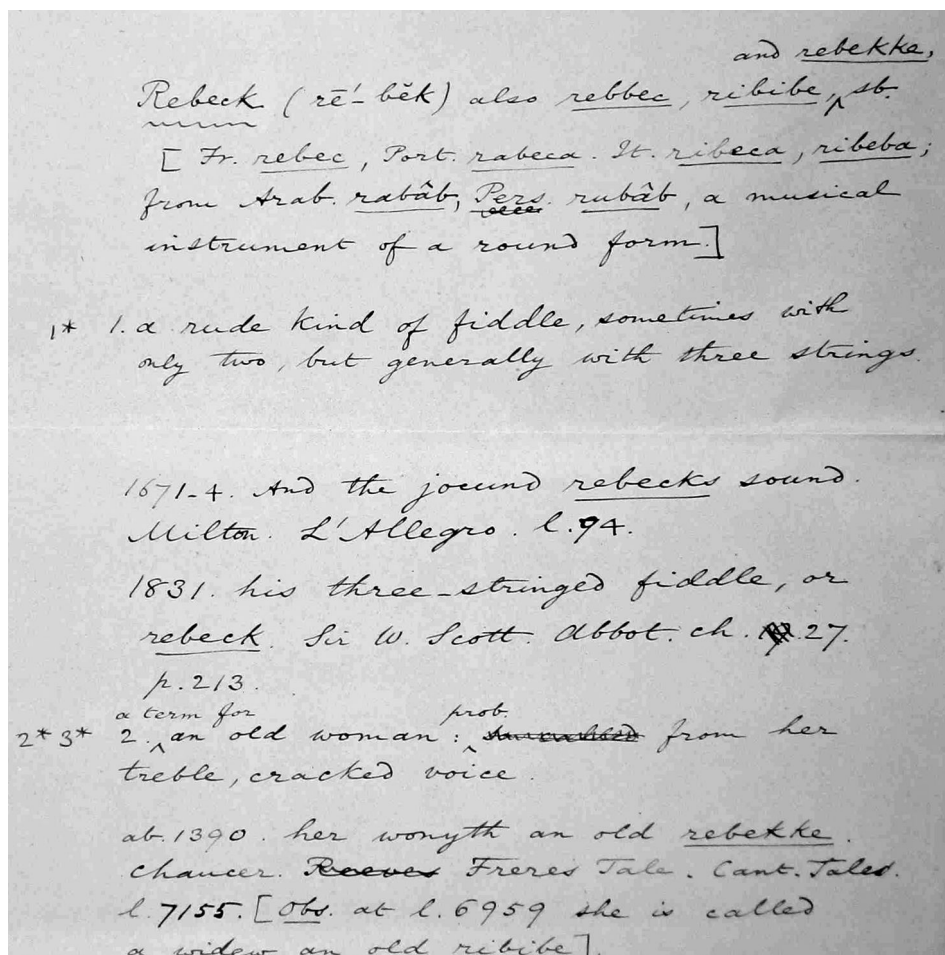 and rebekke,
Rebeck (rē'-bĕk) also rebbec, ribibe, sb.
[Fr. rebec, Port. rabeca. It. ribeca, ribeba;
from Arab. rabâb, Pers. rubâb, a musical
instrument of a round form.]
1* 1. a rude kind of fiddle, sometimes with
only two, but generally with three strings.
1671-4. And the jocund rebecks sound.
Milton. L'Allegro. l.94.
1831. his three-stringed fiddle, or
rebeck. Sir W. Scott. Abbot. ch. 27.
p.213.
a term for prob.
2* 3* 2. an old woman: from her
treble, cracked voice.
ab. 1390. her wonyth an old rebekke.
Chaucer. Reeves Freres Tale. Cant. Tales.
l.7155. [Obs. at l.6959 she is called
a widew an old ribibe].